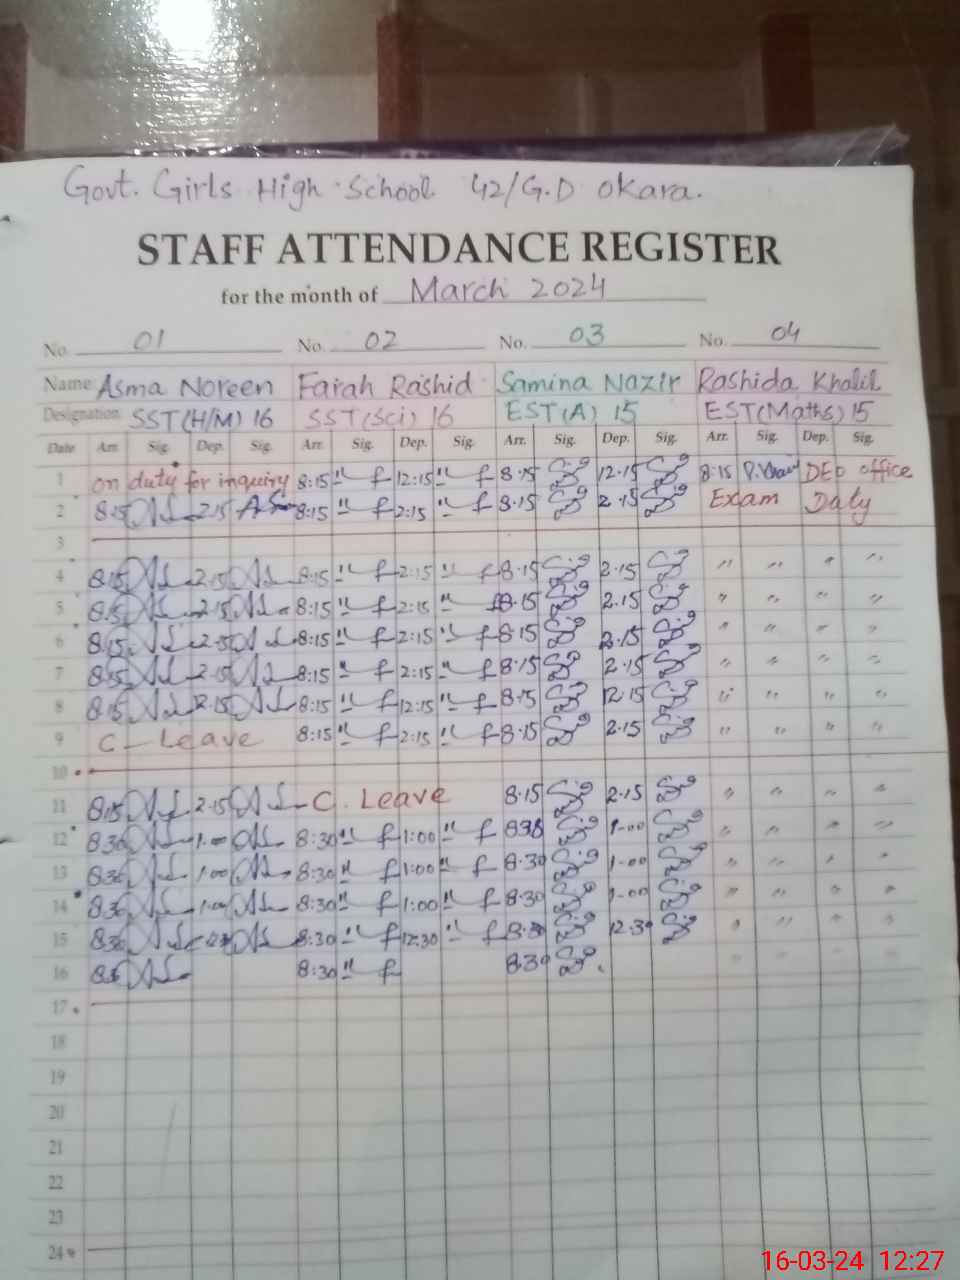 Govt. Girls High School 42/G.D Okara.
STAFF ATTENDANCE REGISTER
for the month of March 2024
No. 01 No. 02 No. 03 No. 04
Name: Asma Noreen Farah Rashid Samina Nazir Rashida Khalil
Designation SST(H/M) 16 SST(Sci) 16 EST(A) 15 EST(Maths) 15
Date Arr. Sig. Dep. Sig. Arr. Sig. Dep. Sig. Arr. Sig. Dep. Sig. Arr. Sig. Dep. Sig.
1 on duty for inquiry 8:15 " 12:15 " 8.15 12.15 8.15 DEO office
2 8.15 2.15 8:15 " 2:15 " 8.15 2.15 Exam Duty
3
4 8.15 2.15 8:15 " 2:15 " 8.15 2.15 " " " "
5 8.15 2.15 8:15 " 2:15 " 8.15 2.15 " " " "
6 8.15 2.15 8:15 " 2:15 " 8.15 2.15 " " " "
7 8.15 2.15 8:15 " 2:15 " 8.15 2.15 " " " "
8 8.15 12.15 8:15 " 12:15 " 8.15 12.15 " " " "
9 C - Leave 8:15 " 2:15 " 8.15 2.15 " " " "
10
11 8.15 2.15 C. Leave 8.15 2.15 " " " "
12 8.30 1.00 8:30 " 1:00 " 1-00 " " " "
13 8.30 1.00 8:30 " 1:00 " 8.30 1-00 " " " "
14 8.30 1.00 8:30 " 1:00 " 8.30 1-00 " " " "
15 8.30 8:30 " 12:30 " 8.30 12.30 " " " "
16 8:30 " 8.30
17
18
19
20
21
22
23
24
16-03-24 12:27